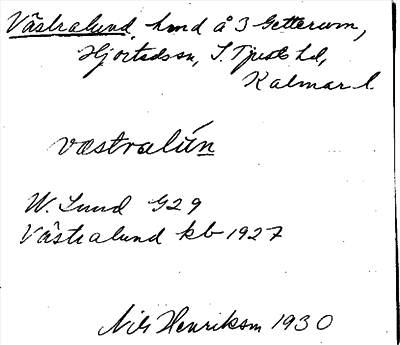 Västralund, hmd å 3 Getterum,
Hjortedssn, S. Tjusts hd,
Kalmar l.
væstralún
W. Lund G29
Västralund kb 1927
Nils Henriksm 1930